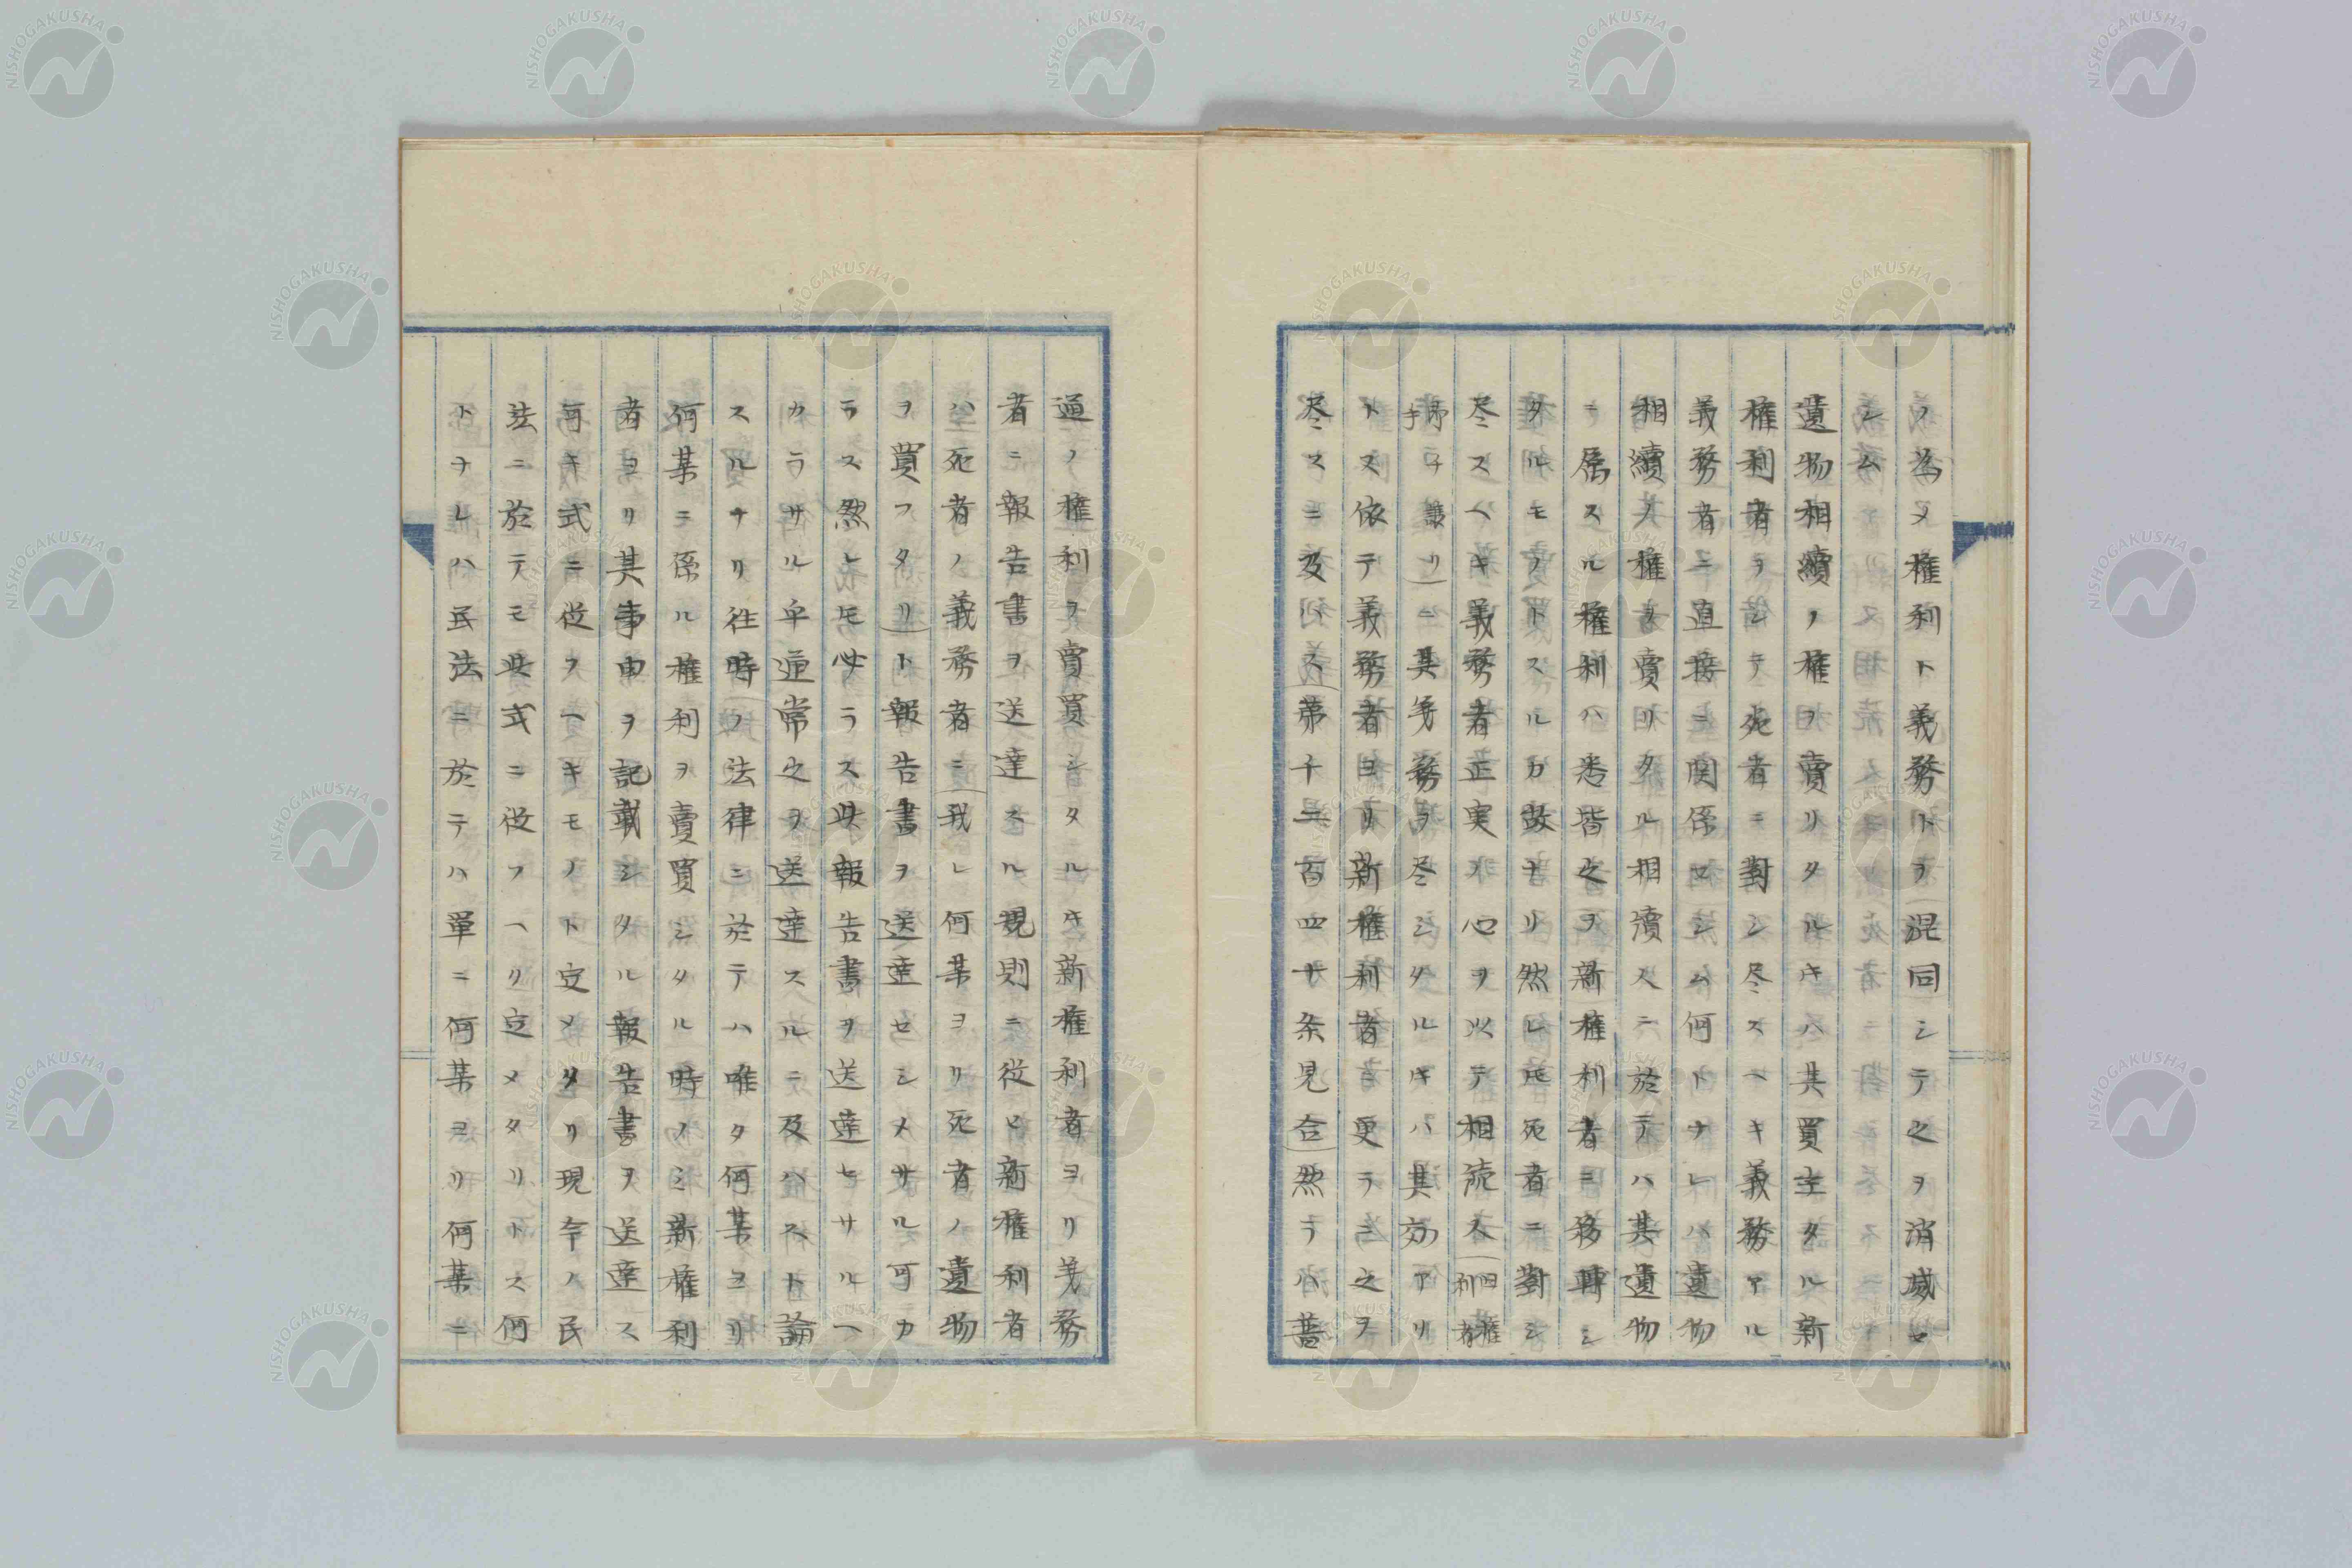 ノ為ヲ権利ト義務トヲ混同シテ之ヲ消滅セ
シム
遺物相續ノ権ヲ賣リタルキハ其買主タル新
権利者ヲシテ死者ニ對シ尽スヘキ義務アル
義務者ニ直接ニ関係セシム何トナレハ遺物
相續ノ権ヲ賣リタル相續人ニ於テハ其遺物
ニ属スル権利ハ悉皆之ヲ新権利者ニ移轉シ
タルモノトスルカ故ナリ然レ𪜈死者ニ對シ
尽スヘキ義務者正実ノ心ヲ以テ相続人(旧権利者
序ヲ譲リ)ニ其義務ヲ尽シタルキハ其効アリ
トス依テ義務者ヨリ新権利者ニ更ラニ之ヲ
尽スニ及ハス(第千二百四十条見合)然ラハ普
通ノ権利ヲ賣買シタルキ新権利者ヨリ義務
者ニ報告書ヲ送達スル規則ニ従ヒ新権利者
ハ死者ノ義務者ニ(我レ何某ヨリ死者ノ遺物
ヲ買フタリ)ト報告書ヲ送達セシメサル可カ
ラス然レモ必ラス此報告書ヲ送達セサルヘ
カラサル乎通常之ヲ送達スルニ及ハスト論
スルナリ往時ノ法律ニ於テハ唯タ何某ヨリ
何某ニ係ル権利ヲ賣買シタル時ノミ新権利
者ヨリ其事由ヲ記載シタル報告書ヲ送達ス
可キ式ニ従フヘキモノト定メタリ現今ノ民
法ニ於テモ此式ニ従フヘリ定メタリトス何
トナレハ民法ニ於テハ單ニ何某ヨリ何某ニ
NISHOGAKUSHA